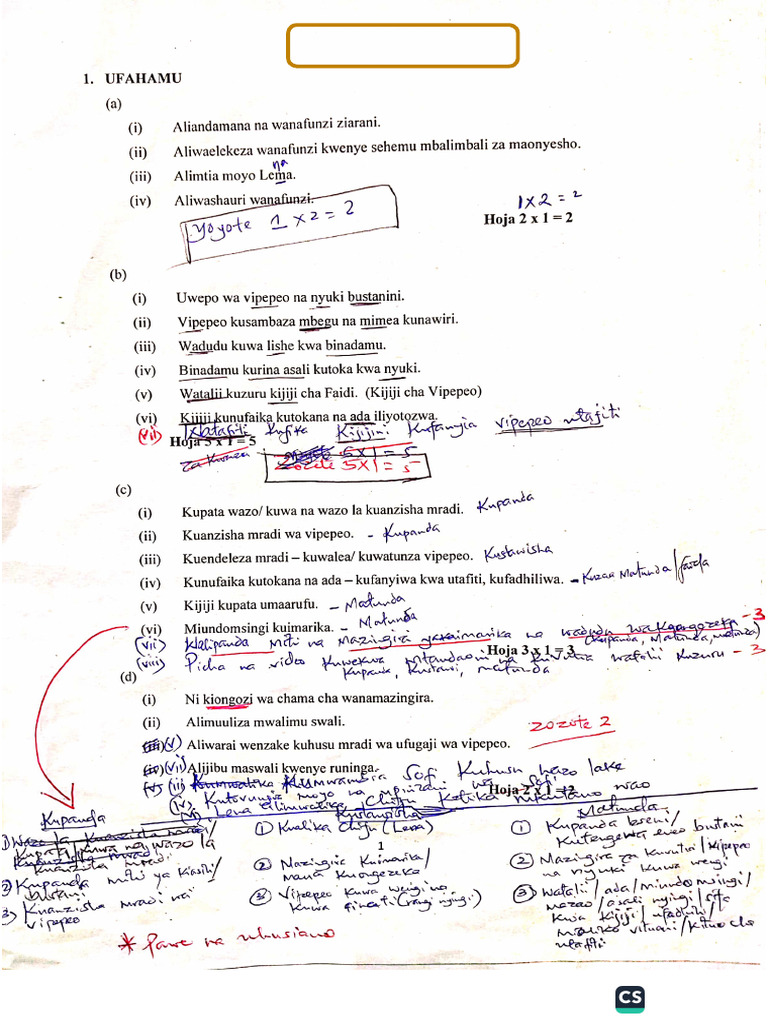 1. UFAHAMU
(a)
(i) Aliandamana na wanafunzi ziarani.
(ii) Aliwaelekeza wanafunzi kwenye sehemu mbalimbali za maonyesho.
na
(iii) Alimtia moyo Lema.
(iv) Aliwashauri wanafunzi.
1x2 = 2
Yoyote 1 x 2 = 2
Hoja 2 x 1 = 2
(b)
(i) Uwepo wa vipepeo na nyuki bustanini.
(ii) Vipepeo kusambaza mbegu na mimea kunawiri.
(iii) Wadudu kuwa lishe kwa binadamu.
(iv) Binadamu kurina asali kutoka kwa nyuki.
(v) Watalii kuzuru kijiji cha Faidi. (Kijiji cha Vipepeo)
(vi) Kijiji kunufaika kutokana na ada iliyotozwa.
(vii) Watafiti kufika Kijijini kufanyia vipepeo utafiti
Hoja 5 x 1 = 5
za kwanza 5x1 = 5
Zozote 5x1 = 5
(c)
(i) Kupata wazo/ kuwa na wazo la kuanzisha mradi. Kupanda
(ii) Kuanzisha mradi wa vipepeo. - Kupanda
(iii) Kuendeleza mradi – kuwalea/ kuwatunza vipepeo. Kustawisha
(iv) Kunufaika kutokana na ada – kufanyiwa kwa utafiti, kufadhiliwa. - Kuzaa Matunda/faida
(v) Kijiji kupata umaarufu. - Matunda
(vi) Miundomsingi kuimarika. - Matunda
(vii) Walipanda miti na Mazingira yakaimarika na wadudu wakaongezeka - 3
(Kupanda, Matunda, matunda)
Hoja 3 x 1 = 3
(viii) Picha na video kuwekwa mitandaoni na kuvutia watalii kuzuru - 3
Kupanda, Kustawi, matunda
(d)
(i) Ni kiongozi wa chama cha wanamazingira.
(ii) Alimuuliza mwalimu swali.
zozote 2
(v) Aliwarai wenzake kuhusu mradi wa ufugaji wa vipepeo.
(vii) Alijibu maswali kwenye runinga.
(iii) Alimwambia Sofi kuhusu wazo lake
(iv) Kutovunjwa moyo na mpinzani wa Sofi
Hoja 2 x 1 = 2
Lena alimwalika Chifu katika mkutano wao
Kupanda
Kustawisha
Matunda
1) Kupata/kuwa na wazo la
kuanzisha mradi
2) Kupanda miti ya kiasili/
bustani
3) Kuanzisha mradi wa
vipepeo
① Kualika Chifu (Lena)
② Mazingira kuimarika/
maua kuongezeka
③ Vipepeo kuwa wengi na
kuwa aina ainati (rangi nyingi)
1
① Kupanda
Kutengewa eneo bustani
② Mazingira za kuvutia/vipepeo
na nyuki kuwa wengi
③ Watalii/ada/miundo msingi/
mazao/asali nyingi/sifa
kwa kijiji/ufadhili/
/Kituo cha
utafiti
* Pawe na uhusiano
CS